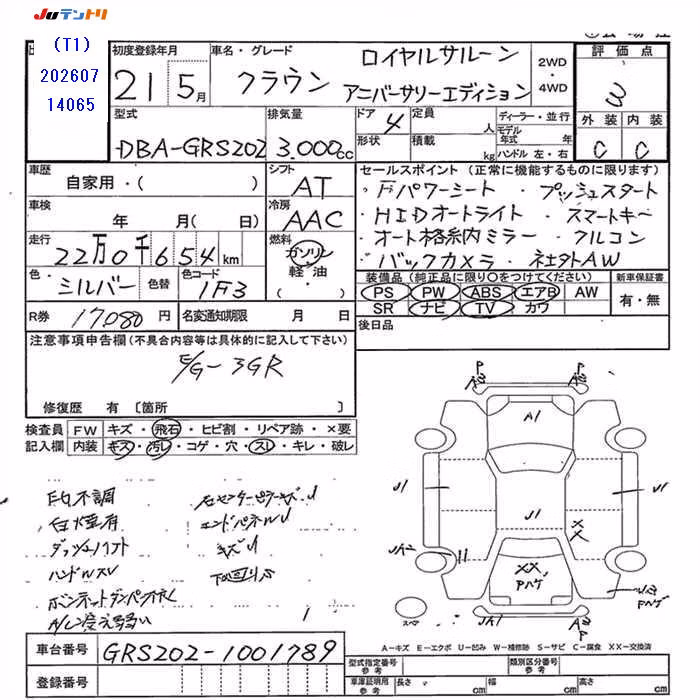 JUテントリ
(T1)
202607
14065
初度登録年月
21 5月
車名・グレード
クラウン
ロイヤルサルーン
アニバーサリーエディション
2WD
・
4WD
評価点
3
型式
DBA-GRS202
排気量
3.000cc
ドア 4
定員 人
形状
積載 kg
ディーラー・並行
モデル年式 年
ハンドル 左・右
外装 内装
C C
車歴
自家用・( )
シフト
AT
車検
年 月( 日)
冷房
AAC
走行
22万0千654km
燃料
ガソリン
軽油
( )
色・
シルバー
色替
色コード
1F3
R券 17,080円
名変通知期限 月 日
セールスポイント (正常に機能するものに限ります)
・Pパワーシート ・プッシュスタート
・HIDオートライト ・スマートキー
・オート格納ミラー ・フルコン
・バックカメラ ・社外AW
装備品(純正品に限り○をつけてください)
PS PW ABS エアB AW
SR ナビ TV カワ
新車保証書
有・無
後日品
注意事項申告欄(不具合内容等は具体的に記入して下さい)
E/G-3GR
修復歴 有 〔箇所 〕
検査員記入欄
FW キズ・飛石・ヒビ割・リペア跡・×要
内装 キズ・汚レ・コゲ・穴・スレ・キレ・破レ
E/G不調
白煙有
ダッシュハフト
ハンドルスレ
ボンネットダンパー抜ケ
A/C冷え弱い
右センターピラーキズU
エンドパネルU
キズU
下回りS
P
A3
P
A1
U1
U1
U1
XX
UA2
XX
Pハゲ
Pハゲ
UA1
スペア
A-キズ E-エクボ U-凹み W-補修跡 S-サビ C-腐食 XX-交換済
車台番号 GRS202-1001789
登録番号
型式指定番号 参考
類別区分番号 参考
車庫証明用 参考
長さ cm
幅 cm
高さ cm